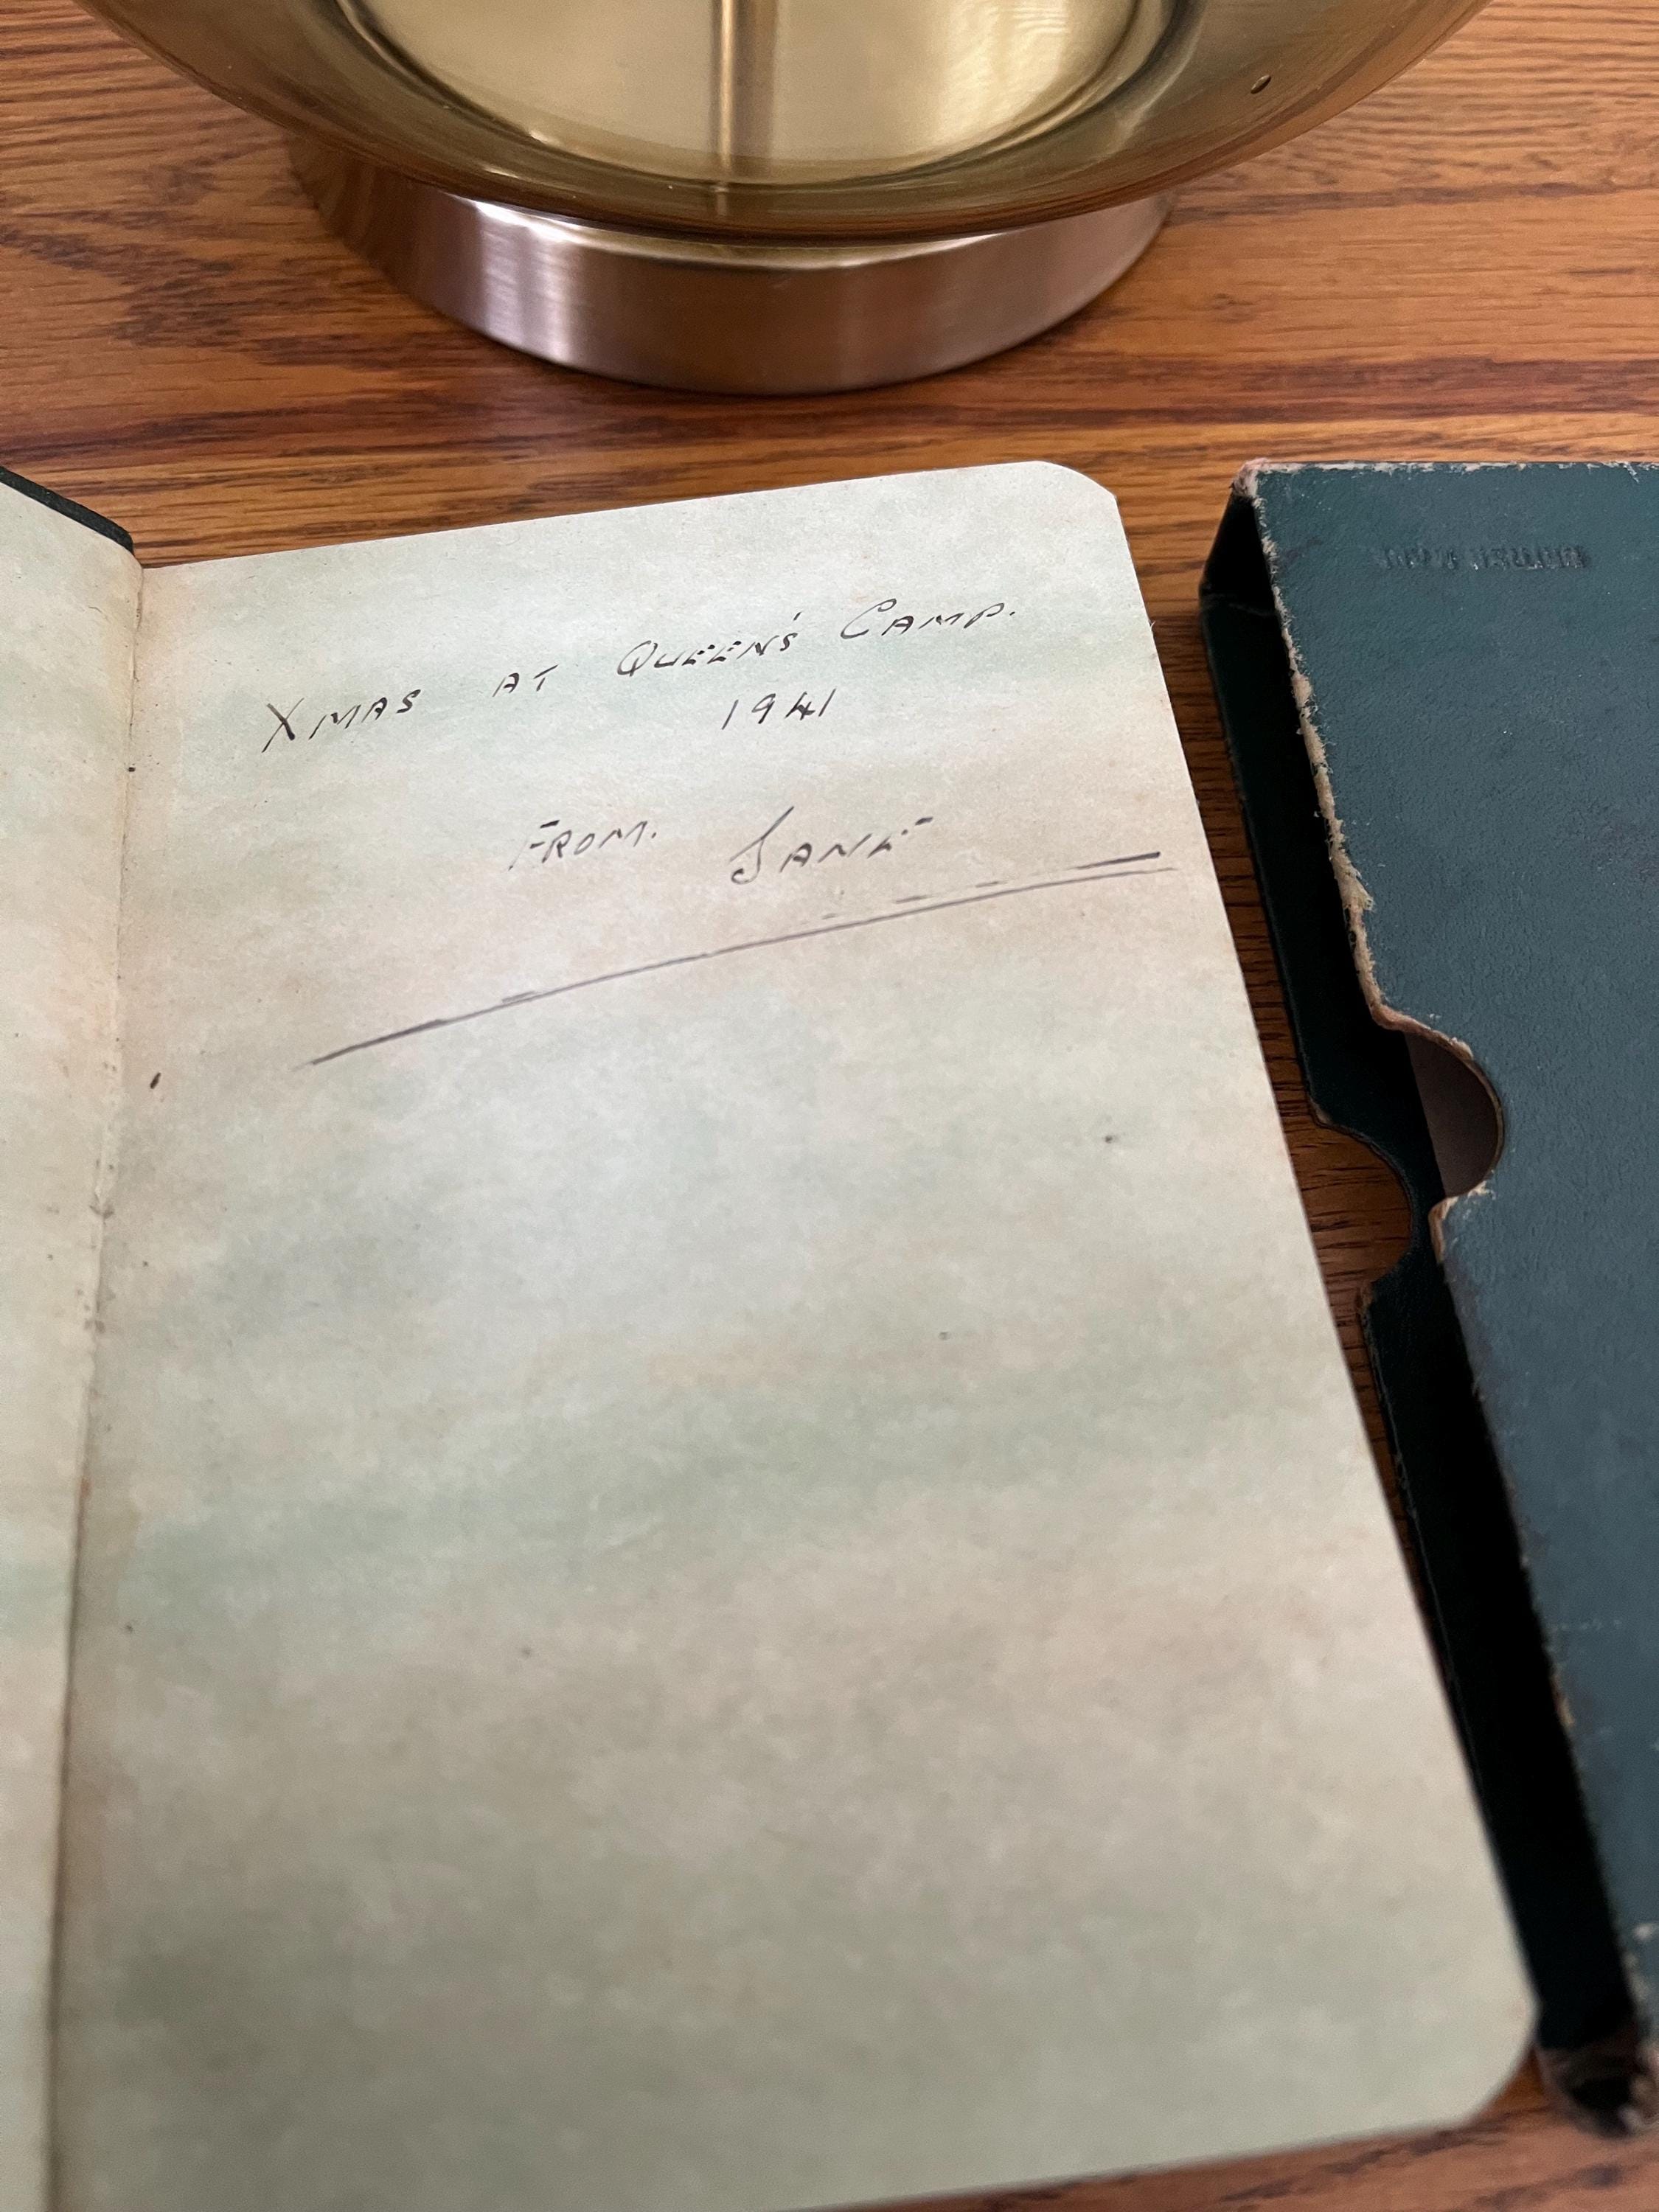 XMAS AT QUEEN'S CAMP.
1941
FROM. JANE